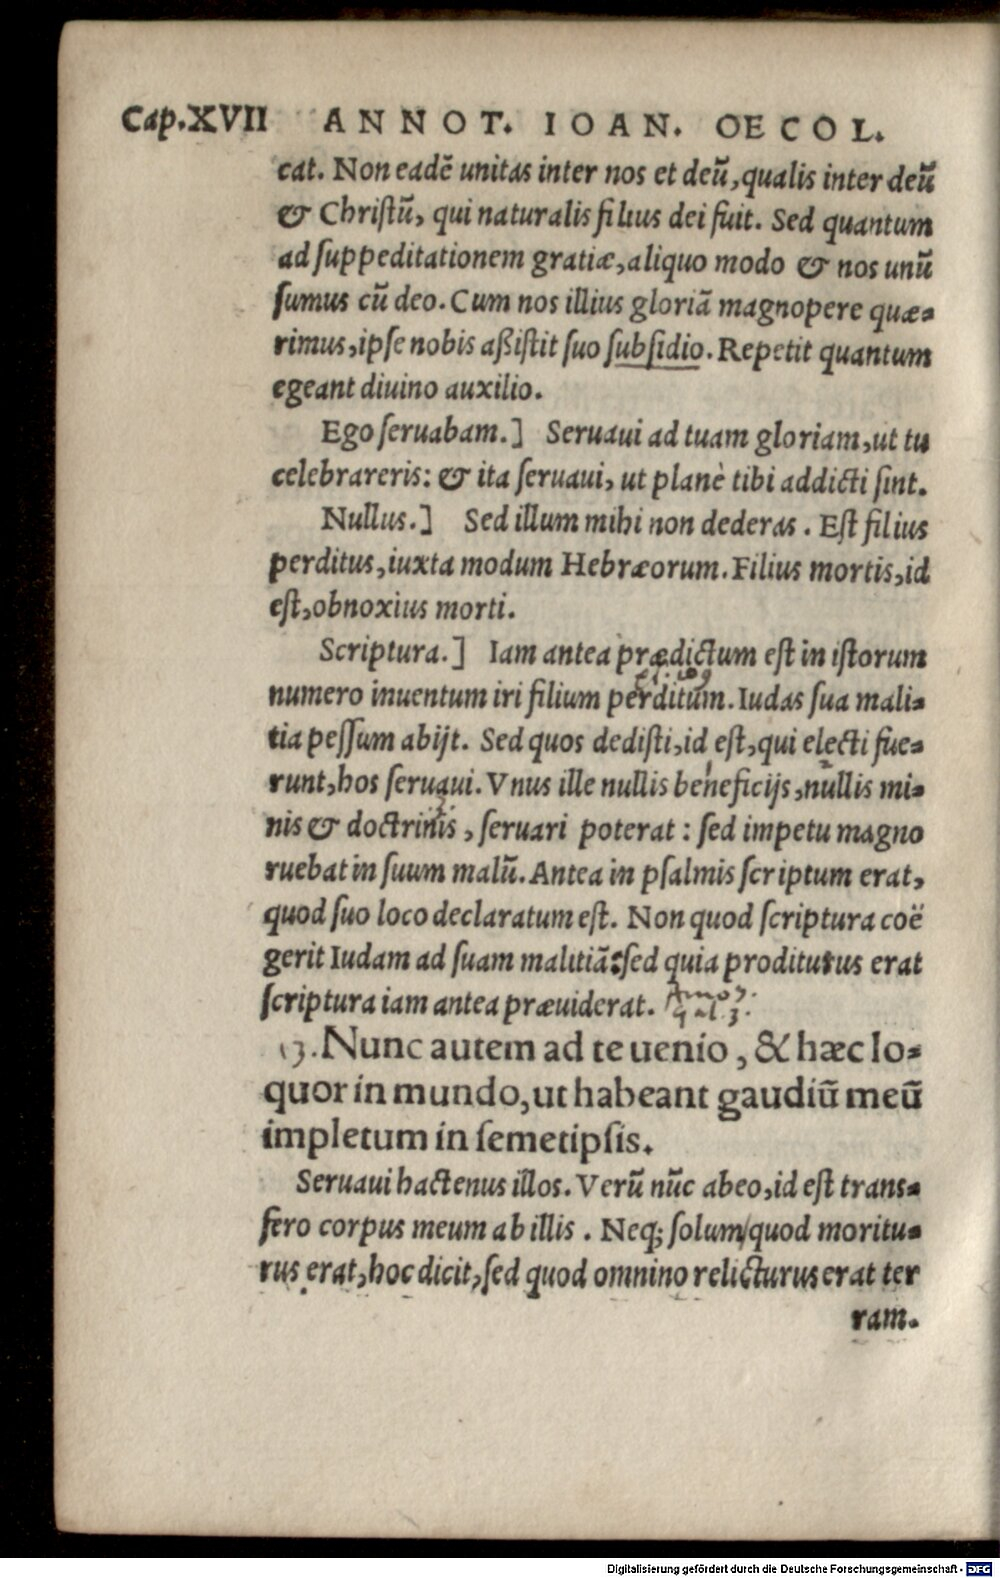 Cap.XVII ANNOT. IOAN. OECOL.
cat. Non eadē unitas inter nos et deū, qualis inter deū
& Chriſtū, qui naturalis filius dei fuit. Sed quantum
ad ſuppeditationem gratiæ, aliquo modo & nos unū
ſumus cū deo. Cum nos illius gloriā magnopere quæ-
rimus, ipſe nobis aßiſtit ſuo ſubſidio. Repetit quantum
egeant diuino auxilio.
Ego ſeruabam.] Seruaui ad tuam gloriam, ut tu
celebrareris: & ita ſeruaui, ut planè tibi addicti ſint.
Nullus.] Sed illum mihi non dederas. Eſt filius
perditus, iuxta modum Hebræorum. Filius mortis, id
eſt, obnoxius morti.
Scriptura.] Iam antea prædictum eſt in iſtorum
numero inuentum iri filium perditum. Iudas ſua mali-
tia peſſum abijt. Sed quos dediſti, id eſt, qui electi fue-
runt, hos ſeruaui. Vnus ille nullis beneficijs, nullis mi-
nis & doctrinis, ſeruari poterat: ſed impetu magno
ruebat in ſuum malū. Antea in pſalmis ſcriptum erat,
quod ſuo loco declaratum eſt. Non quod ſcriptura coë
gerit Iudam ad ſuam malitiā: ſed quia proditurus erat
ſcriptura iam antea præuiderat.
13. Nunc autem ad te uenio, & hæc lo-
quor in mundo, ut habeant gaudiū meū
impletum in ſemetipſis.
Seruaui hactenus illos. Verū nūc abeo, id eſt trans-
fero corpus meum ab illis. Neq; ſolum/quod moritu-
rus erat, hoc dicit, ſed quod omnino relicturus erat ter
ram.
Digitalisierung gefördert durch die Deutsche Forschungsgemeinschaft - DFG